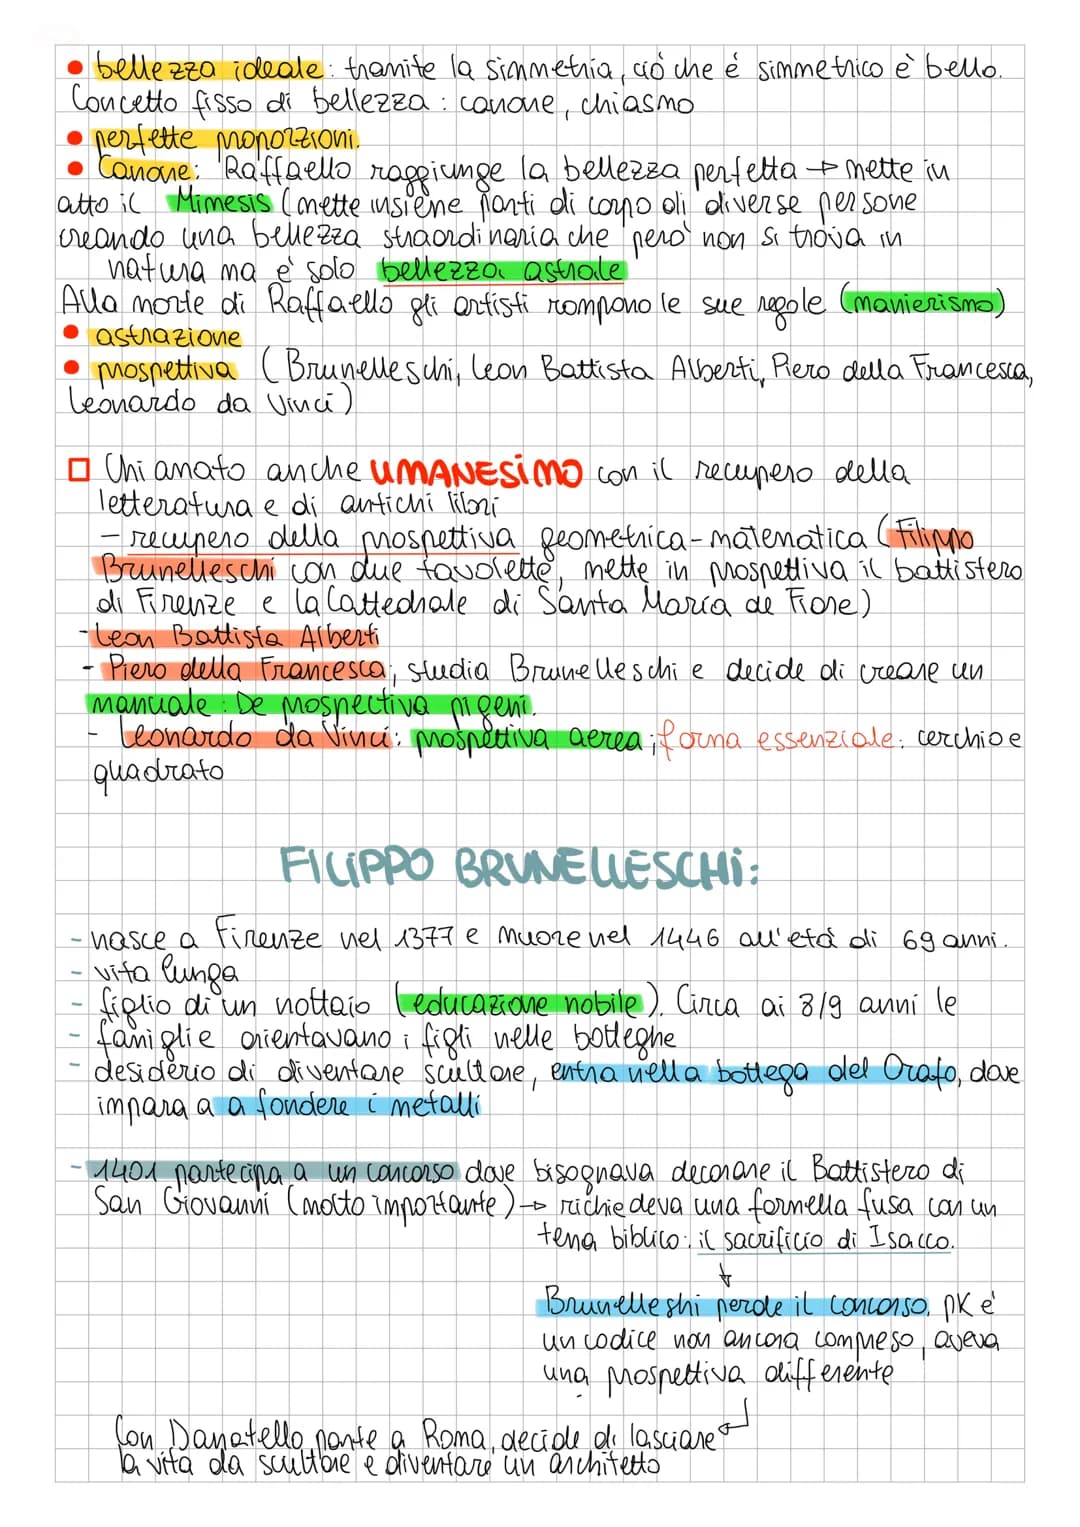 • bellezza ideale: tramite la simmetria, ciò che é simmetrico è bello.
Concetto fisso di bellezza: canone, chiasmo
• perfette proporzioni.
• Canone: Raffaello raggiunge la bellezza perfetta → mette in
atto il Mimesis (mette insieme parti di corpo di diverse persone
creando una bellezza straordinaria che però non si trova in
natura ma è solo bellezza astrale
Alla morte di Raffaello gli artisti rompono le sue regole (manierismo)
• astrazione
• prospettiva (Brunelleschi, Leon Battista Alberti, Piero della Francesca,
Leonardo da Vinci)
□ Chiamato anche UMANESIMO con il recupero della
letteratura e di antichi libri
- recupero della prospettiva geometrica-matematica (Filippo
Brunelleschi con due tavolette, mette in prospettiva il battistero
di Firenze e la Cattedrale di Santa Maria de Fiore)
- Leon Battista Alberti
- Piero della Francesca; studia Brunelleschi e decide di creare un
manuale: De prospectiva pigeni.
- Leonardo da Vinci: prospettiva aerea; forma essenziale: cerchio e
quadrato
FILIPPO BRUNELLESCHI:
- nasce a Firenze nel 1377 e muore nel 1446 all'età di 69 anni.
- vita lunga
- figlio di un nottaio (educazione nobile). Circa ai 8/9 anni le
- famiglie orientavano i figli nelle botteghe
- desiderio di diventare scultore, entra nella bottega del Orafo, dove
impara a a fondere i metalli
- 1401 partecipa a un concorso dove bisognava decorare il Battistero di
San Giovanni (molto importante) → richiedeva una formella fusa con un
tema biblico: il sacrificio di Isacco.
↓
Brunelleshi perde il concorso, pK è
un codice non ancora compreso, aveva
una prospettiva differente
Con Donatello parte a Roma, decide di lasciare ↲
la vita da scultore e diventare un architetto